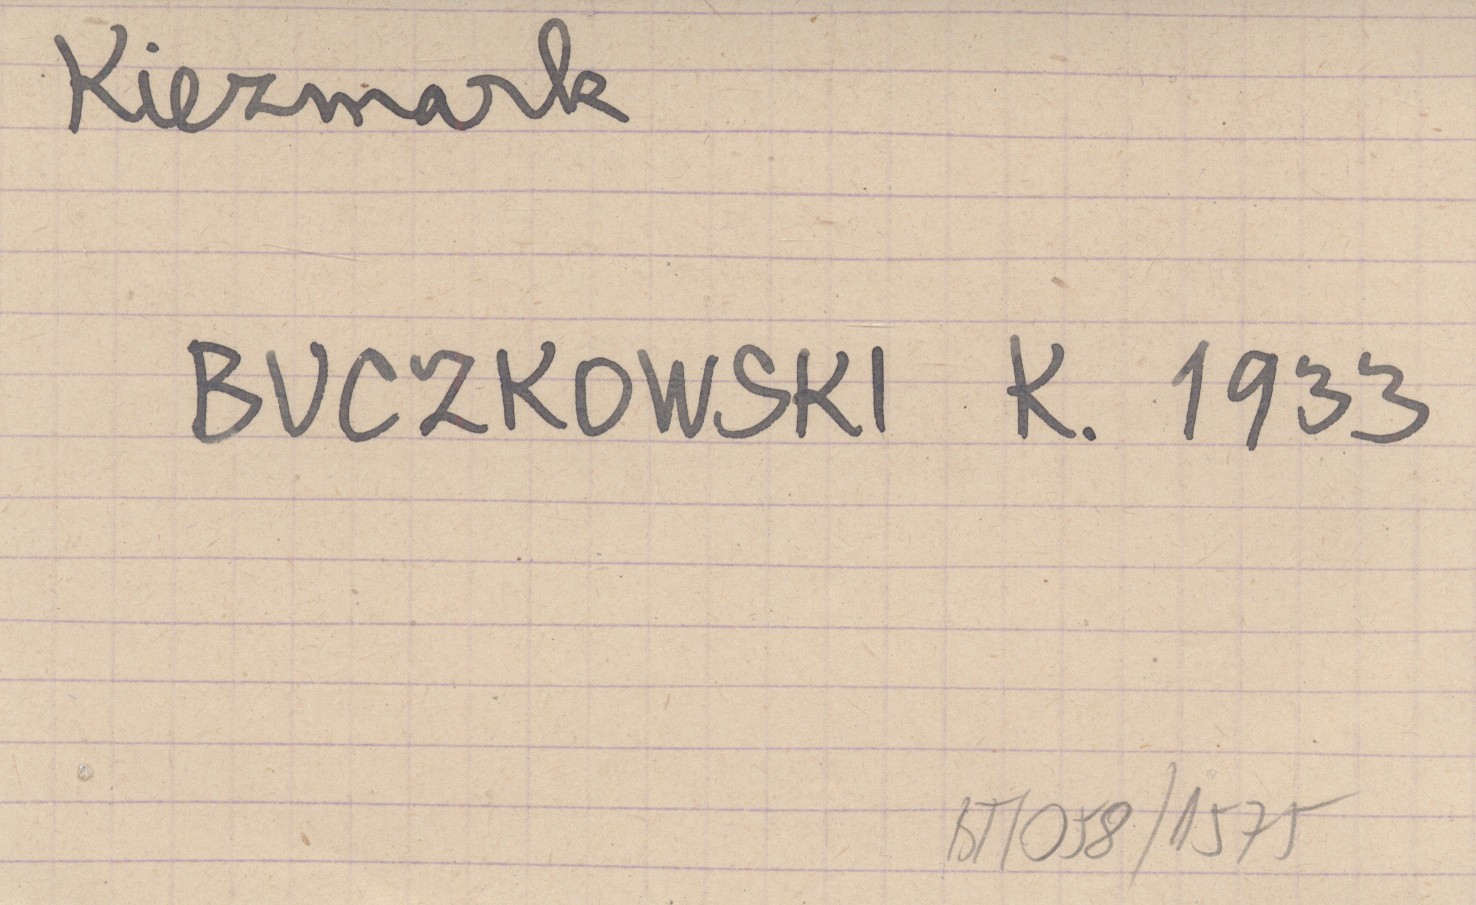 Kiezmark
BUCZKOWSKI K. 1933
BT/058/1575